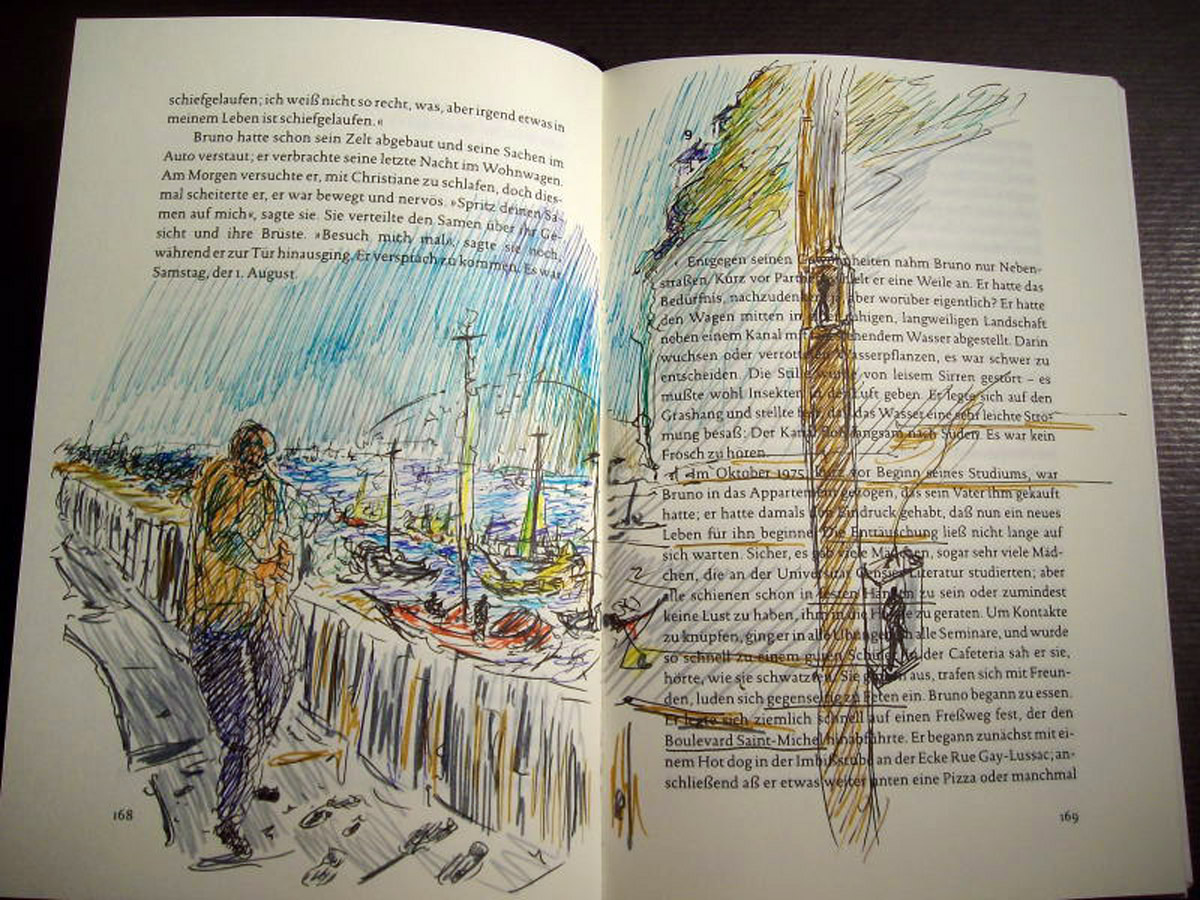 schiefgelaufen; ich weiß nicht so recht, was, aber irgend etwas in
meinem Leben ist schiefgelaufen.«
Bruno hatte schon sein Zelt abgebaut und seine Sachen im
Auto verstaut; er verbrachte seine letzte Nacht im Wohnwagen.
Am Morgen versuchte er, mit Christiane zu schlafen, doch dies-
mal scheiterte er, er war bewegt und nervös. »Spritz deinen Sa-
men auf mich«, sagte sie. Sie verteilte den Samen über ihr Ge-
sicht und ihre Brüste. »Besuch mich mal«, sagte sie noch,
während er zur Tür hinausging. Er versprach zu kommen. Es war
Samstag, der 1. August.
168
9
Entgegen seinen Gewohnheiten nahm Bruno nur Neben-
straßen. Kurz vor hielt er eine Weile an. Er hatte das
Bedürfnis, nachzudenken; ja, aber worüber eigentlich? Er hatte
den Wagen mitten in einer ruhigen, langweiligen Landschaft
neben einem Kanal mit stehendem Wasser abgestellt. Darin
wuchsen oder verrotteten Wasserpflanzen, es war schwer zu
entscheiden. Die Stille wurde von leisem Sirren gestört – es
mußte wohl Insekten in der Luft geben. Er legte sich auf den
Grashang und stellte fest, daß das Wasser eine sehr leichte Strö-
mung besaß: Der Kanal floß langsam nach Süden. Es war kein
Frosch zu hören.
Im Oktober 1975, kurz vor Beginn seines Studiums, war
Bruno in das Appartement gezogen, das sein Vater ihm gekauft
hatte; er hatte damals den Eindruck gehabt, daß nun ein neues
Leben für ihn beginne. Die Enttäuschung ließ nicht lange auf
sich warten. Sicher, es gab viele Mädchen, sogar sehr viele Mäd-
chen, die an der Universität Censier Literatur studierten; aber
alle schienen schon in festen Händen zu sein oder zumindest
keine Lust zu haben, ihm in die Hände zu geraten. Um Kontakte
zu knüpfen, ging er in alle Übungen, in alle Seminare, und wurde
so schnell zu einem guten Schüler. In der Cafeteria sah er sie,
hörte, wie sie schwatzten. Sie gingen aus, trafen sich mit Freun-
den, luden sich gegenseitig zu Feten ein. Bruno begann zu essen.
Er legte sich ziemlich schnell auf einen Freßweg fest, der den
Boulevard Saint-Michel hinabführte. Er begann zunächst mit ei-
nem Hot dog in der Imbißstube an der Ecke Rue Gay-Lussac; an-
schließend aß er etwas weiter unten eine Pizza oder manchmal
169